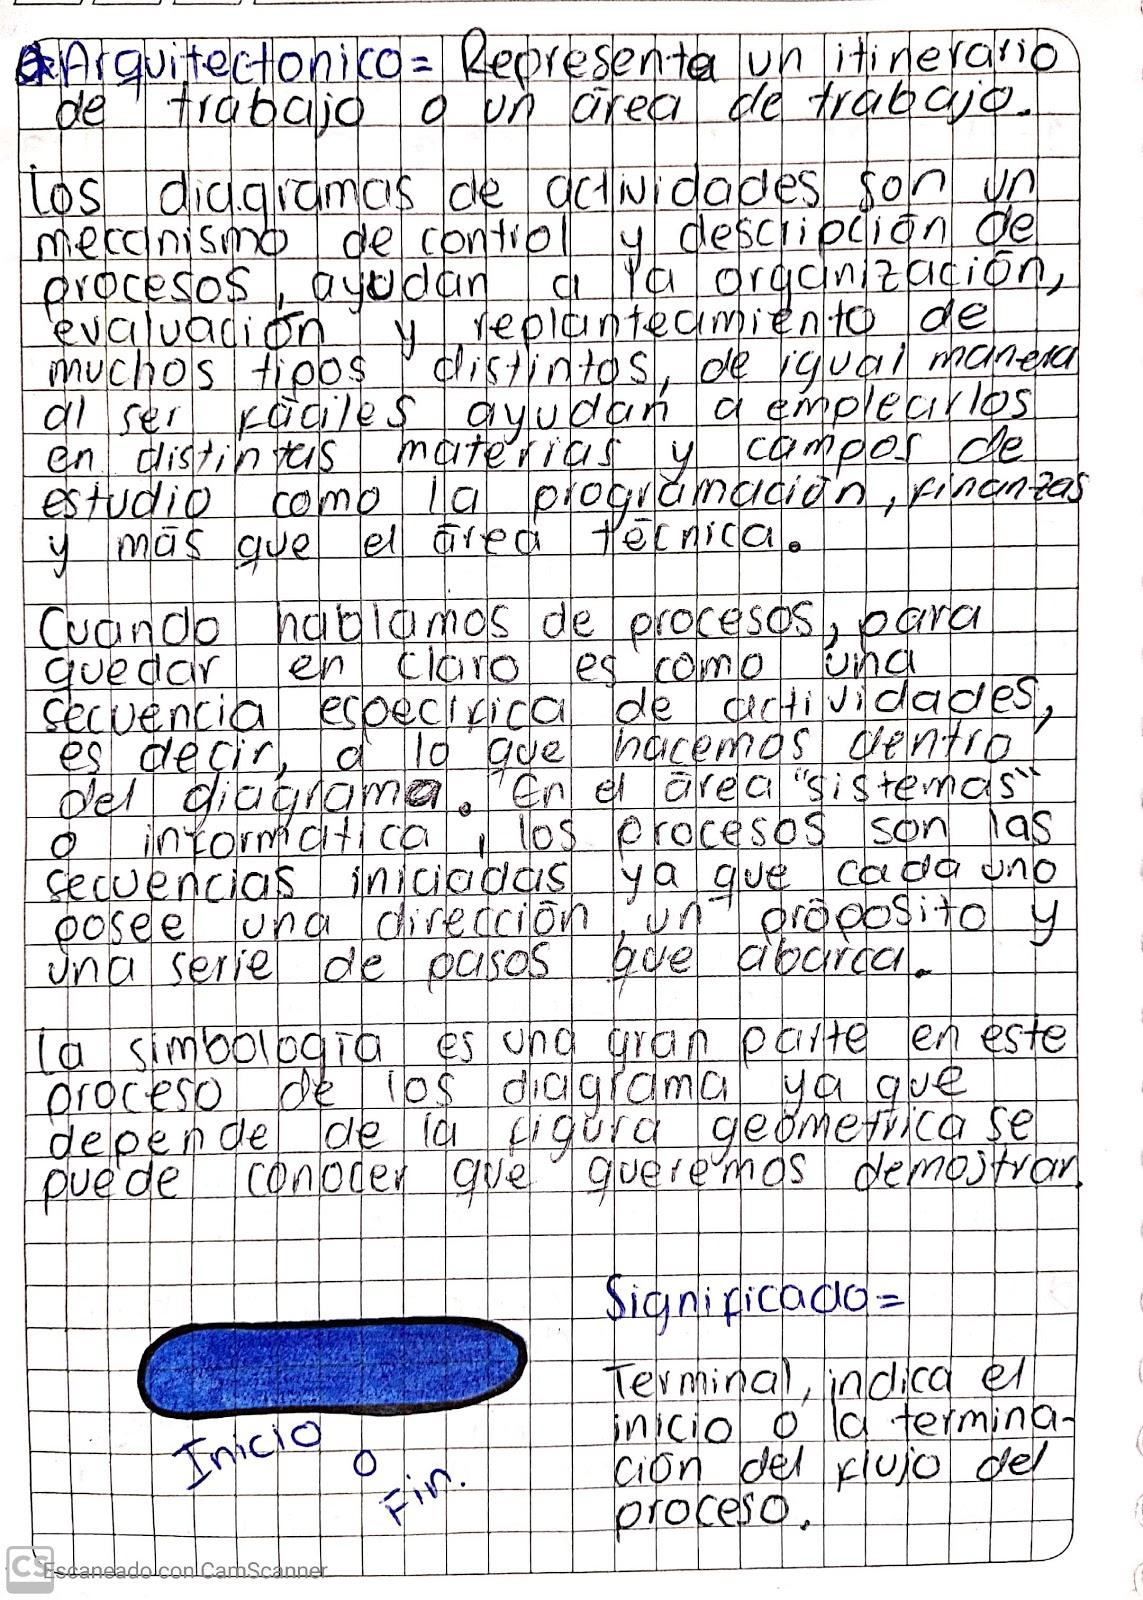 Arquitectonico= Representa un itinerario
de trabajo o un área de trabajo.
Los diagramas de actividades son un
mecanismo de control y descripción de
procesos, ayudan a la organización,
evaluación y replanteamiento de
muchos tipos distintos, de igual manera
al ser fáciles ayudan a emplearlos
en distintas materias y campos de
estudio como la programación, finanzas
y más que el área técnica.
Cuando hablamos de procesos, para
quedar en claro es como una
secuencia especifica de actividades,
es decir, a lo que hacemos dentro
del diagrama. En el área "sistemas"
o informática, los procesos son las
secuencias iniciadas ya que cada uno
posee una dirección, un próposito y
una serie de pasos que abarca.
La simbología es una gran parte en este
proceso de los diagrama ya que
depende de la figura geometrica se
puede conocer que queremos demostrar.
Significado=
Inicio
o
Fin.
Terminal, indica el
inicio o la termina-
ción del flujo del
proceso.
CS Escaneado con CamScanner